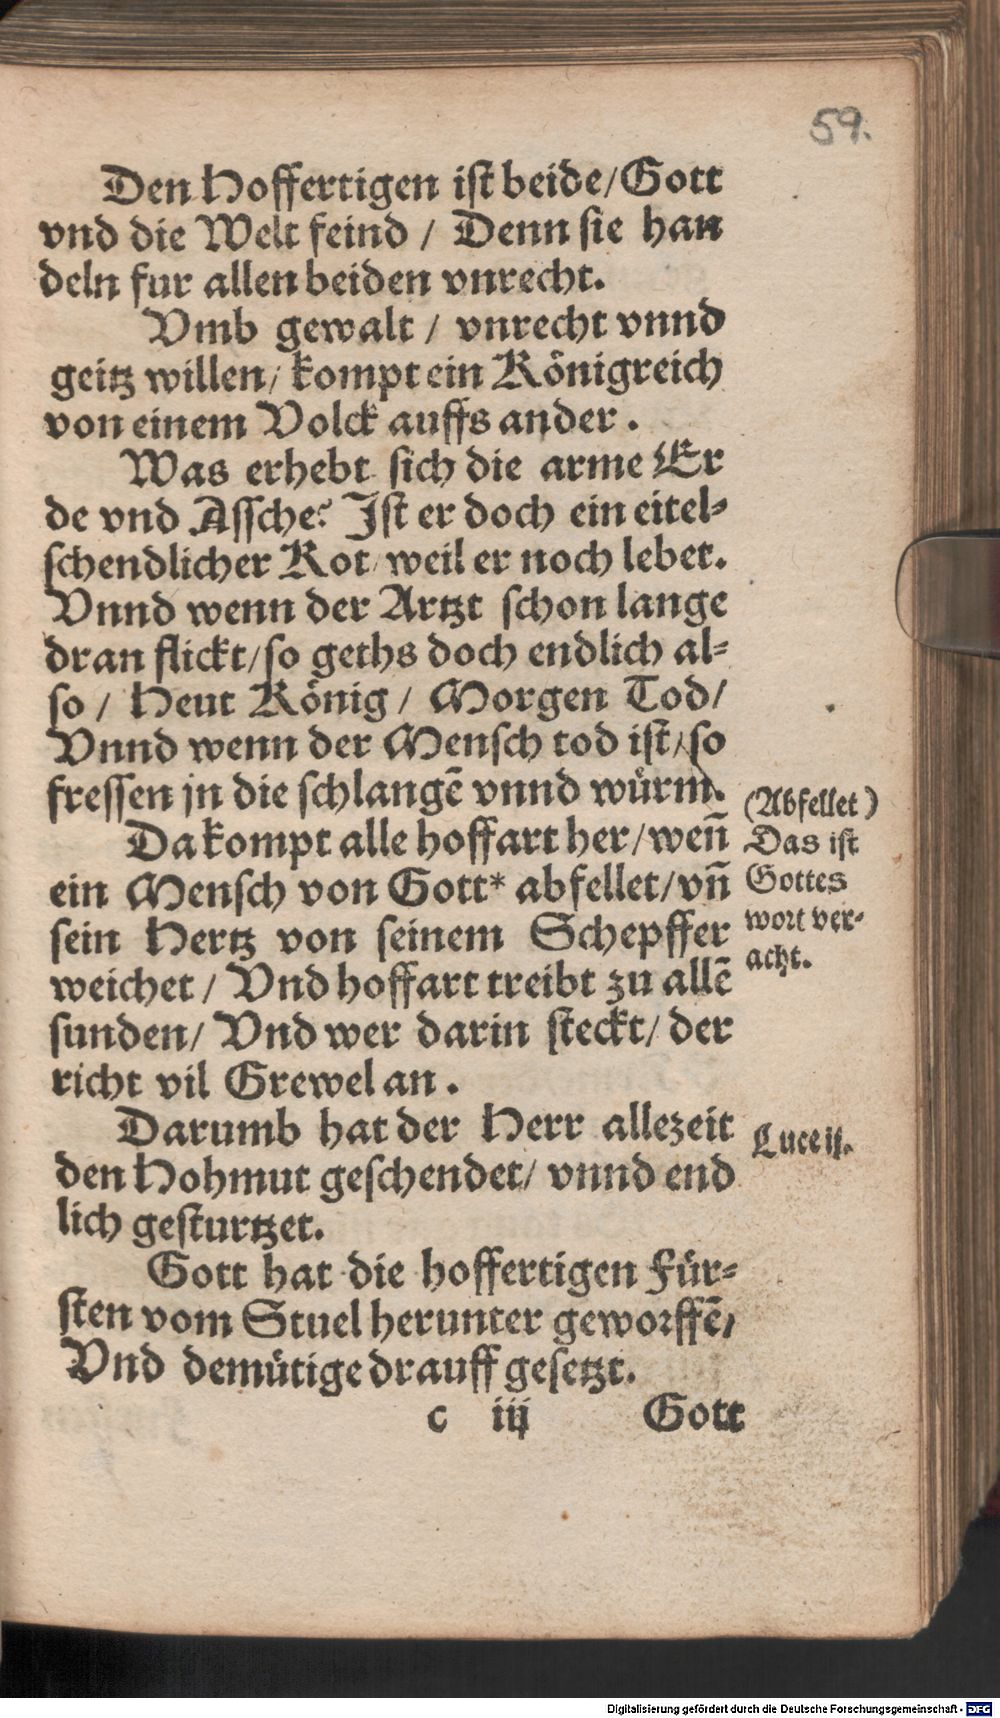 59.
Den Hoffertigen ist beide/Gott
vnd die Welt feind / Denn sie han
deln fur allen beiden vnrecht.
Vmb gewalt / vnrecht vnnd
geitz willen/ kompt ein Königreich
von einem Volck auffs ander.
Was erhebt sich die arme Er
de vnd Assche? Ist er doch ein eitel-
schendlicher Kot/ weil er noch lebet.
Vnnd wenn der Artzt schon lange
dran flickt/so geths doch endlich al-
so / Heut König / Morgen Tod/
Vnnd wenn der Mensch tod ist/so
fressen jn die schlangē vnnd wuͤrm.
Da kompt alle hoffart her/wen̄
ein Mensch von Gott* abfellet/vn̄
sein Hertz von seinem Schepffer
weichet / Vnd hoffart treibt zu allē
sunden/ Vnd wer darin steckt/ der
richt vil Grewel an.
(Abfellet)
Das ist
Gottes
wort ver-
acht.
Darumb hat der Herr allezeit
den Hohmut geschendet/ vnnd end
lich gesturtzet.
Luce ij.
Gott hat die hoffertigen Für-
sten vom Stuel herunter geworffē/
Vnd demütige drauff gesetzt.
c iij Gott
Digitalisierung gefördert durch die Deutsche Forschungsgemeinschaft - DFG